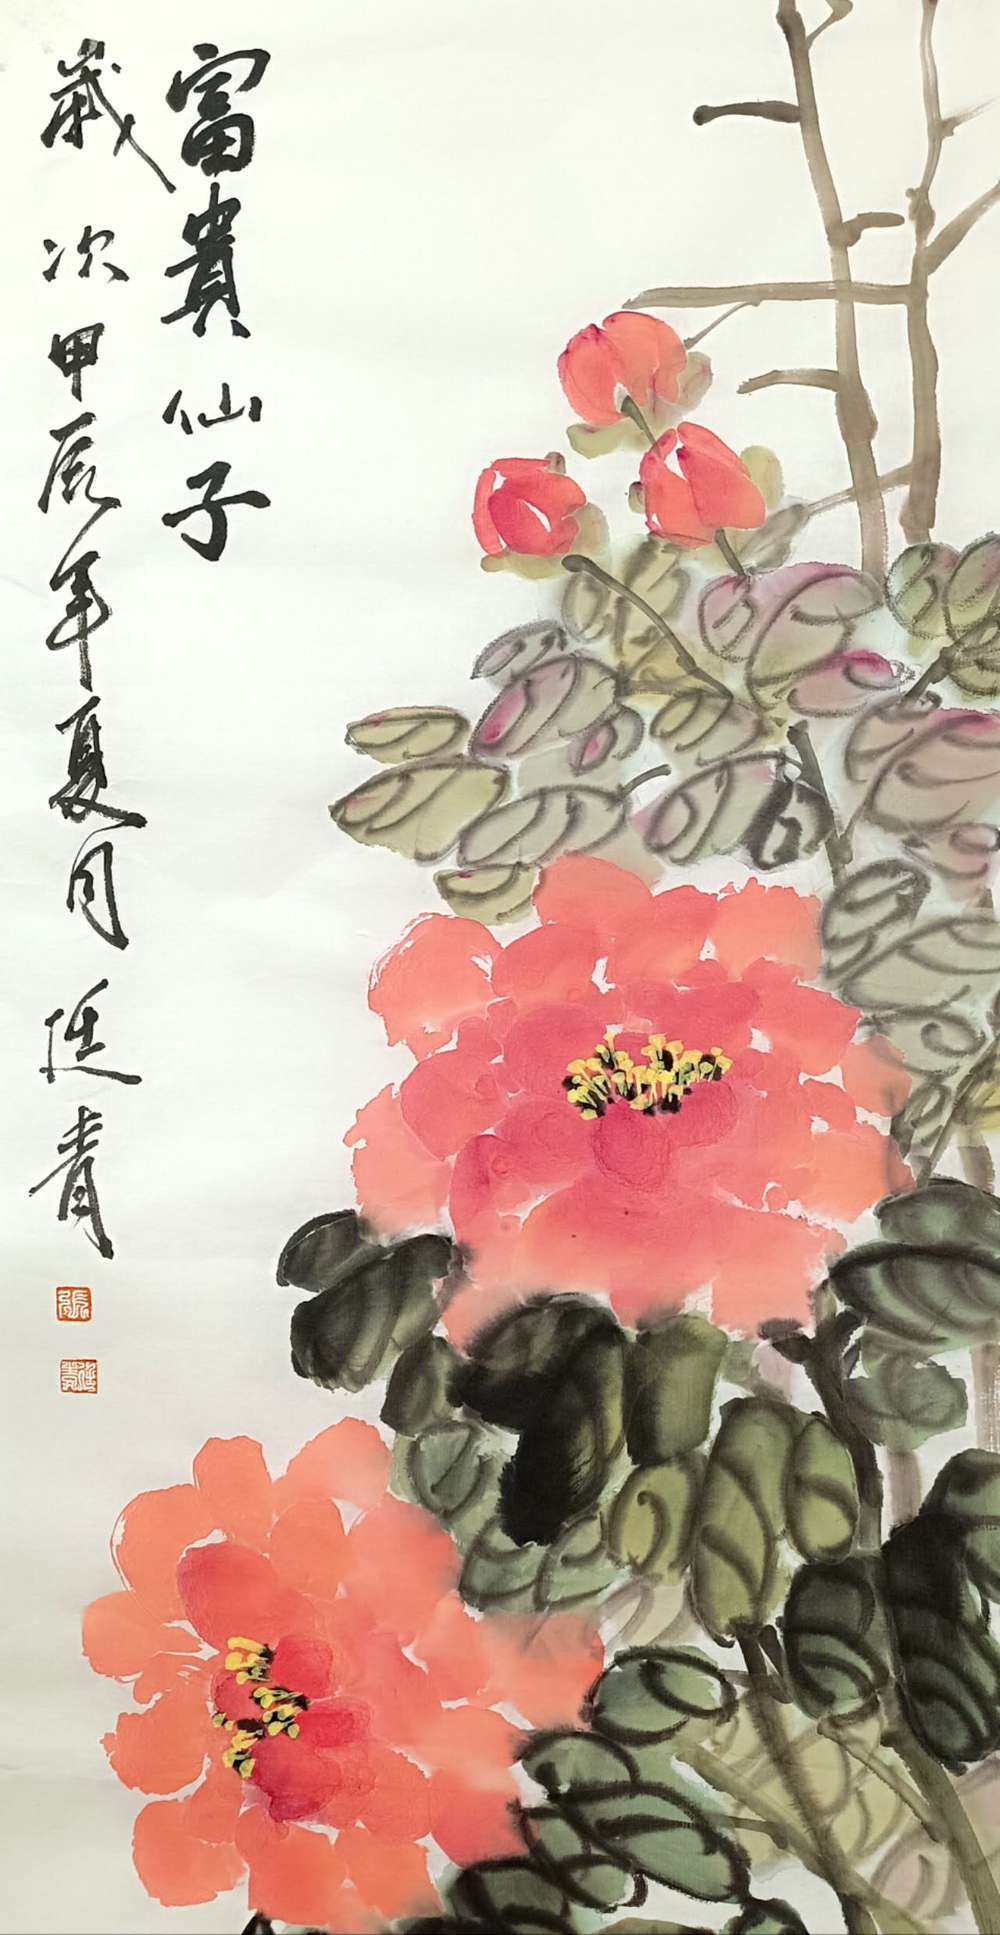 富貴仙子
歲次甲辰年夏月廷青
張